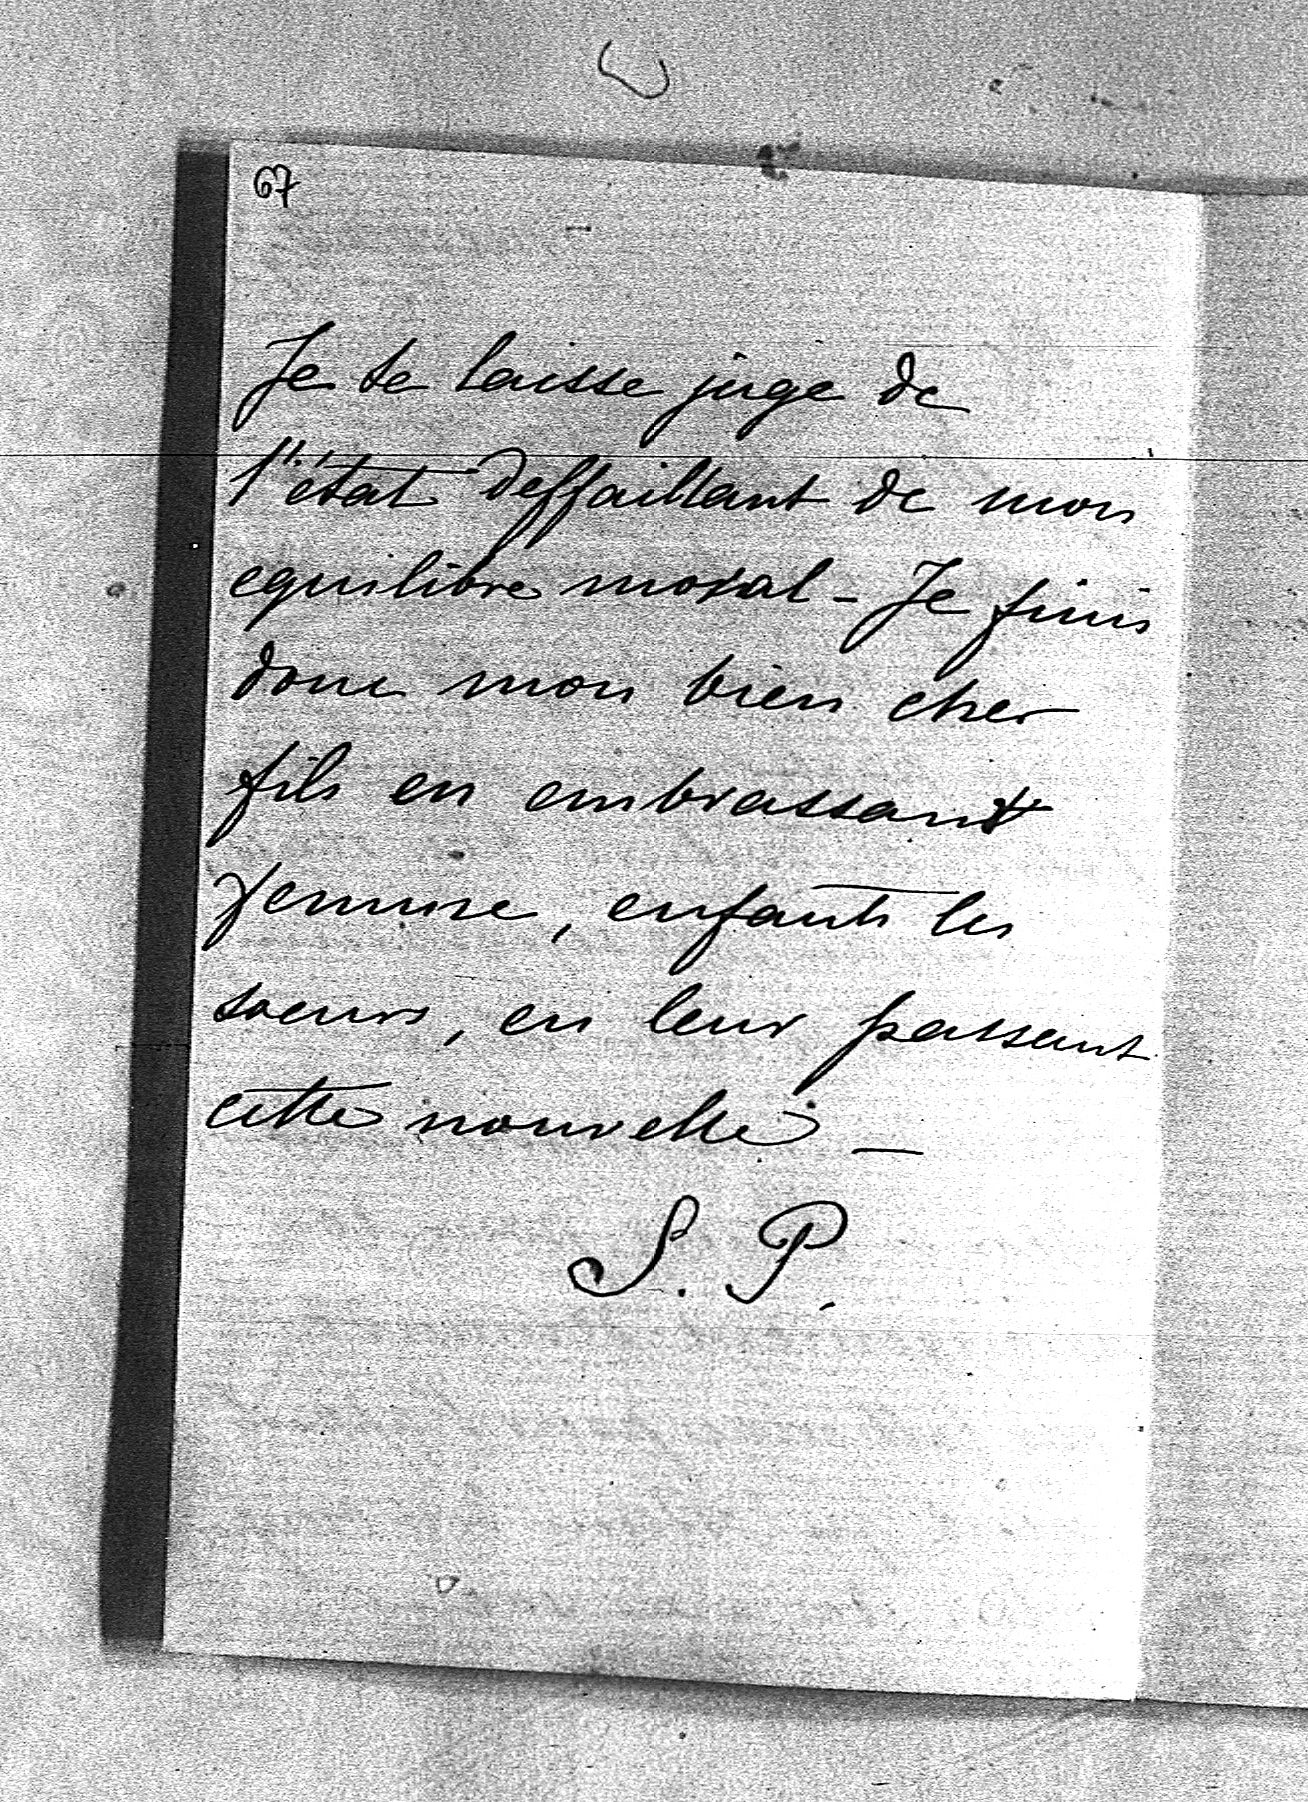 67
Je te laisse juge de
l'état deffaillant de mon
equilibre moral - Je finis
donc mon bien cher
fils en embrassant
femme, enfants les
soeurs, en leur passant
cette nouvelle -
S. P.